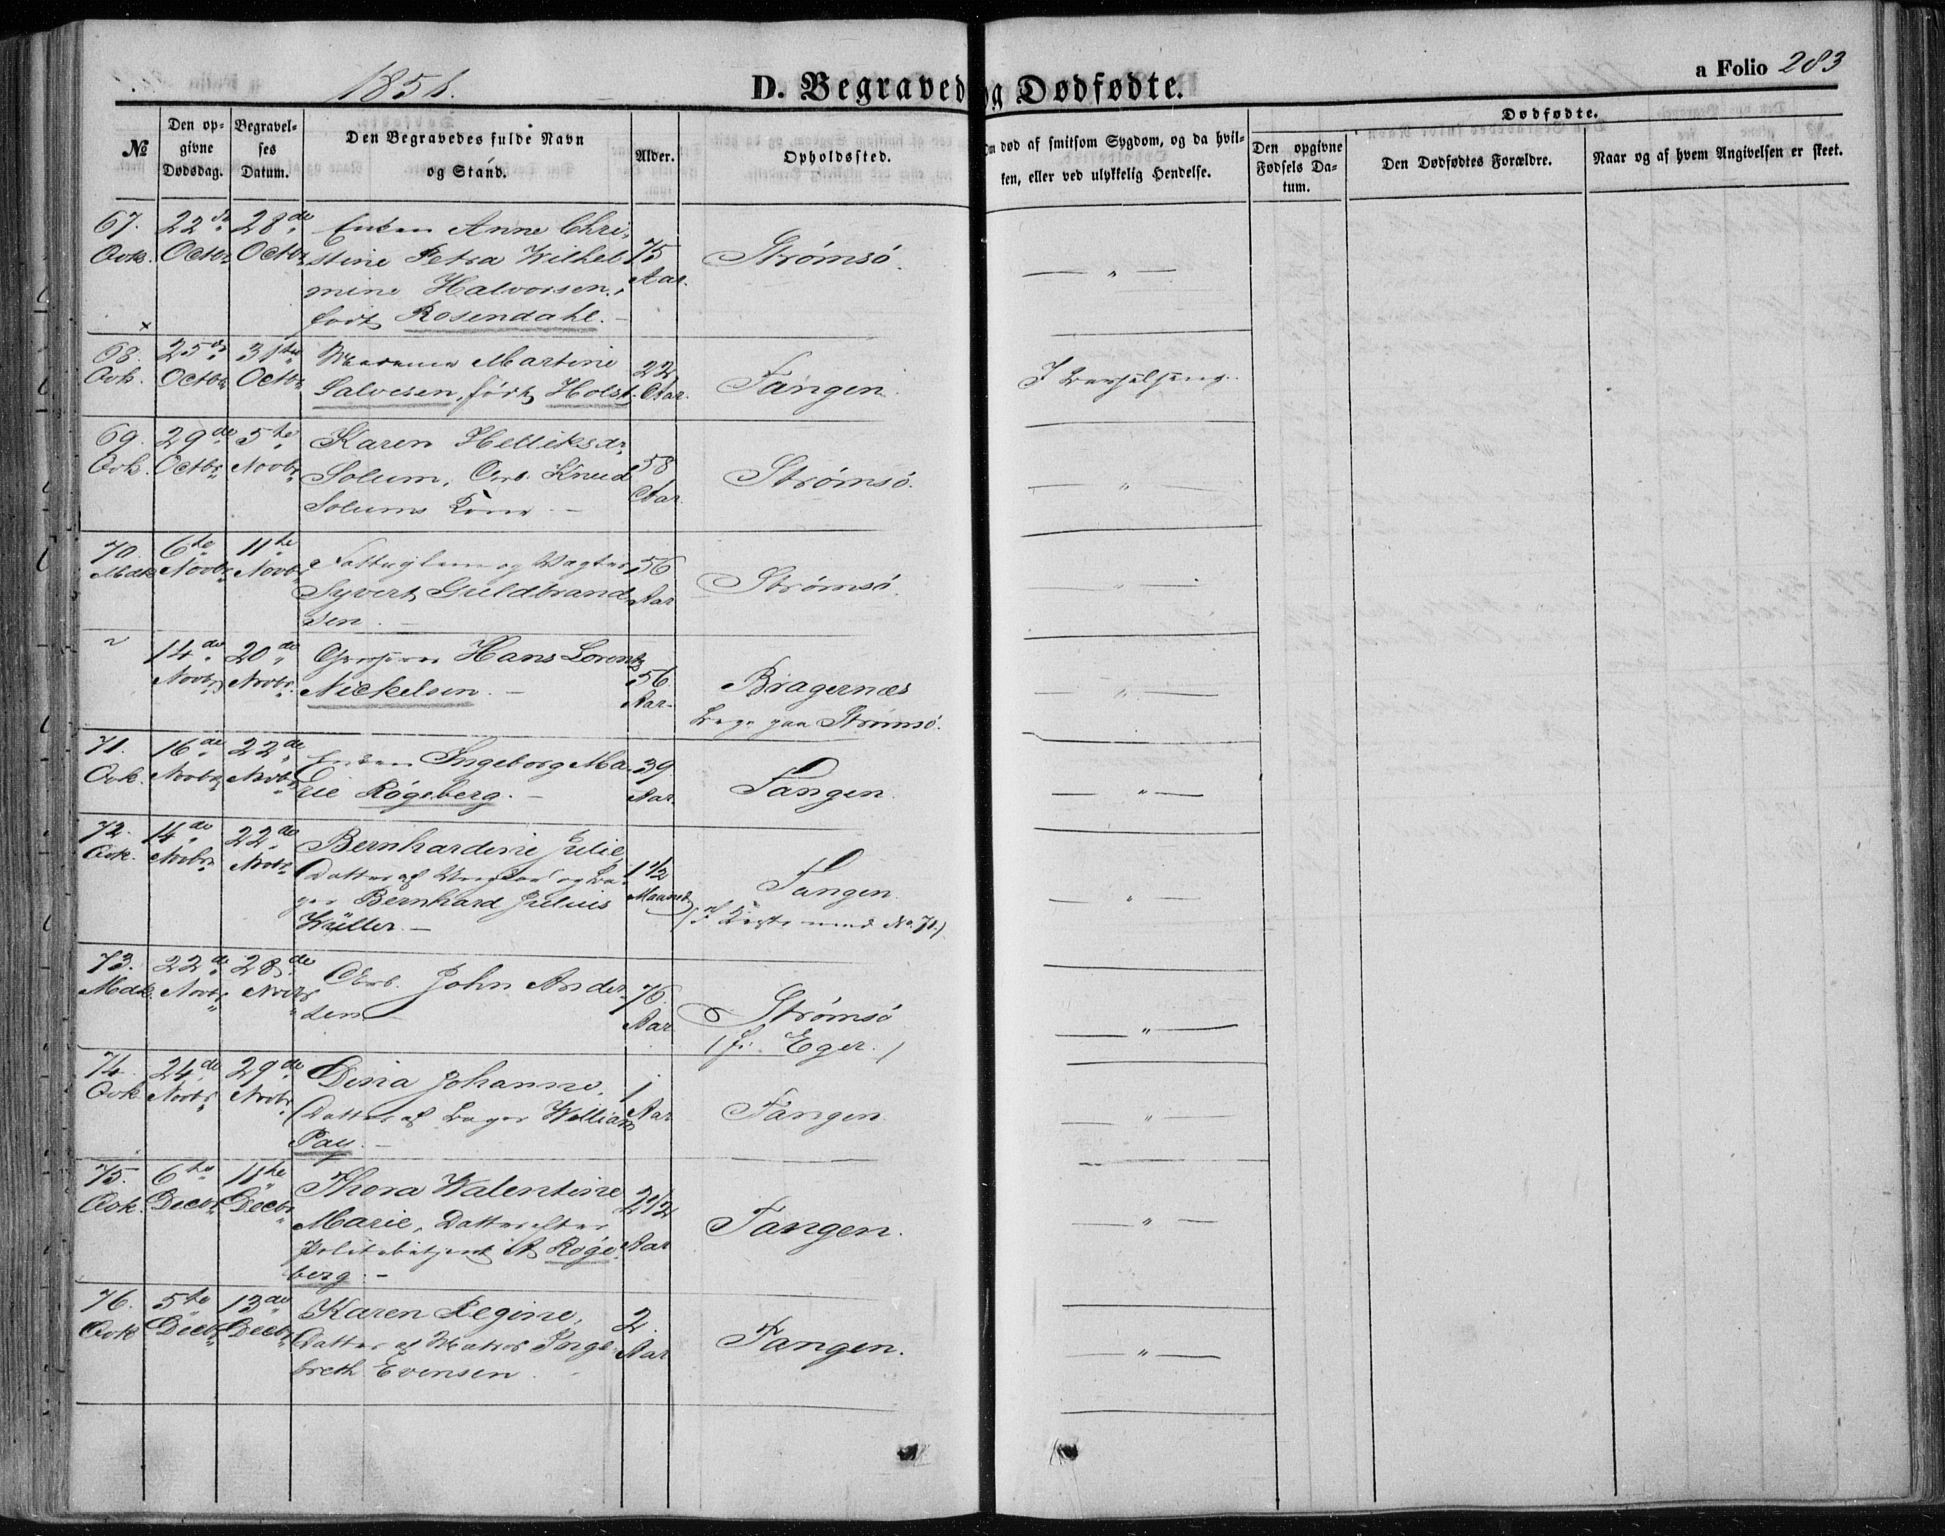 1851.
D. Begravede og Dødfødte.
a Folio 283
№
Den opgivne Dødsdag.
Begravelses Datum.
Den Begravedes fulde Navn og Stand.
Alder.
Opholdssted.
Om død af smitsom Sygdom, og da hvilken, eller ved ulykkelig Hendelse.
Dødfødte.
Den opgivne Fødsels Datum.
Den Dødfødtes Forældre.
Naar og af hvem Angivelsen er skeet.
67. Qvk. 22de Octbr 28de Octbr Enken Anne Chri-
stine Petra Wilhel-
mine Halvorsen,
født Rosendahl. 75 Aar. Strømsø. — " —
68. Qvk. 25de Octbr 31te Octbr Madame Martine
Salvesen, født Holst. 22 Aar. Tangen. I Barselseng.
69. Qvk. 29de Octbr 5te Novbr Karen Helliksdr
Solum, Arb. Knud
Solums Kone. 58 Aar. Strømsø. — " —
70. Mdk. 6te Novbr 11te Novbr Fattiglem og Vægter
Syvert Guldbrand-
sen. 56 Aar Strømsø. — " —
" 14de Novbr 20de Novbr Hans Lorentz
Nickelsen. 56 Aar. Bragernæs
paa Strømsø. — " —
71. Qvk. 16de Novbr 22de Novbr Enken Ingeborg Ma-
rie Røgeberg. 39 Aar. Tangen. — " —
72. Qvk. 14de Novbr 22de Novbr Bernhardine Julie,
Datter af
Bernhard Julius
Wüller. 1 1/2 Maaned Tangen.
(i Kiste med No. 71.) — " —
73. Mdk. 22de Novbr 28de Novbr Arb. John Ander-
sen 76 Aar Strømsø
(fr. Eger.) — " —
74. Qvk. 24de Novbr 29de Novbr Dina Johanne,
Datter af William
Pay. 1 Aar Tangen. — " —
75. Qvk. 6te Decbr 11te Decbr Thora Walentine
Marie, Datter efter
Politibetjent A. Røge-
berg. 2 1/2 Aar Tangen. — " —
76. Qvk 5te Decbr 13de Decbr Karen Regine,
Datter af Matros Inge-
breth Evensen. 2 Aar Tangen. — " —